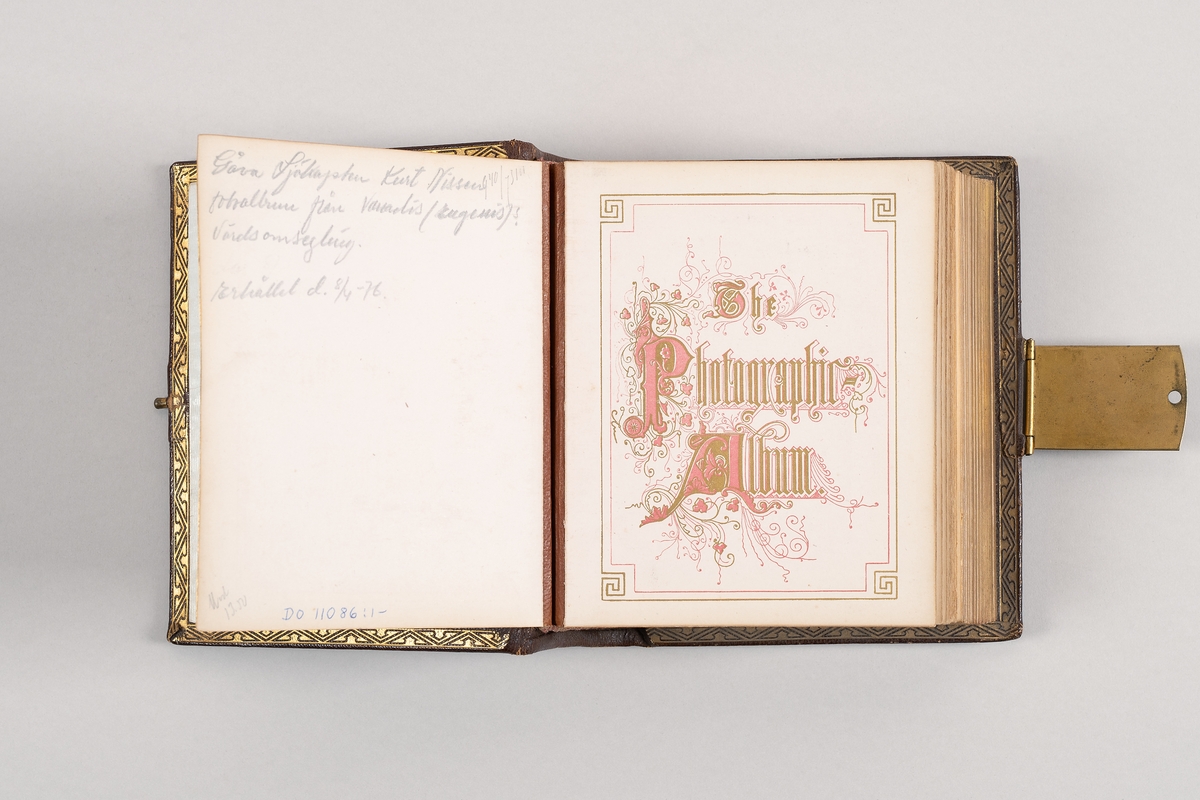 Gåva Sjökapten Kurt Nissen
fotoalbum från Vanadis (Eugenies)
Världsomsegling.
Erhållet d. 8/4-76.
DO 11086:1-
The
Photographic-
Album.